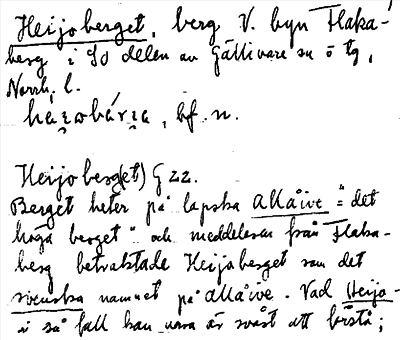 Heijoberget, berg V. byn Flaka-
berg i SO delen av Gällivare sn o tg,
Norrb. l.
bf. n.
Heijoberg(et) G 22.
Berget heter på lapska allåive = "det
höga berget" och meddelaren från Flaka-
berg betraktade Heijoberget som det
svenska namnet på allåive. Vad Heijo-
i så fall kan vara är svårt att förstå;